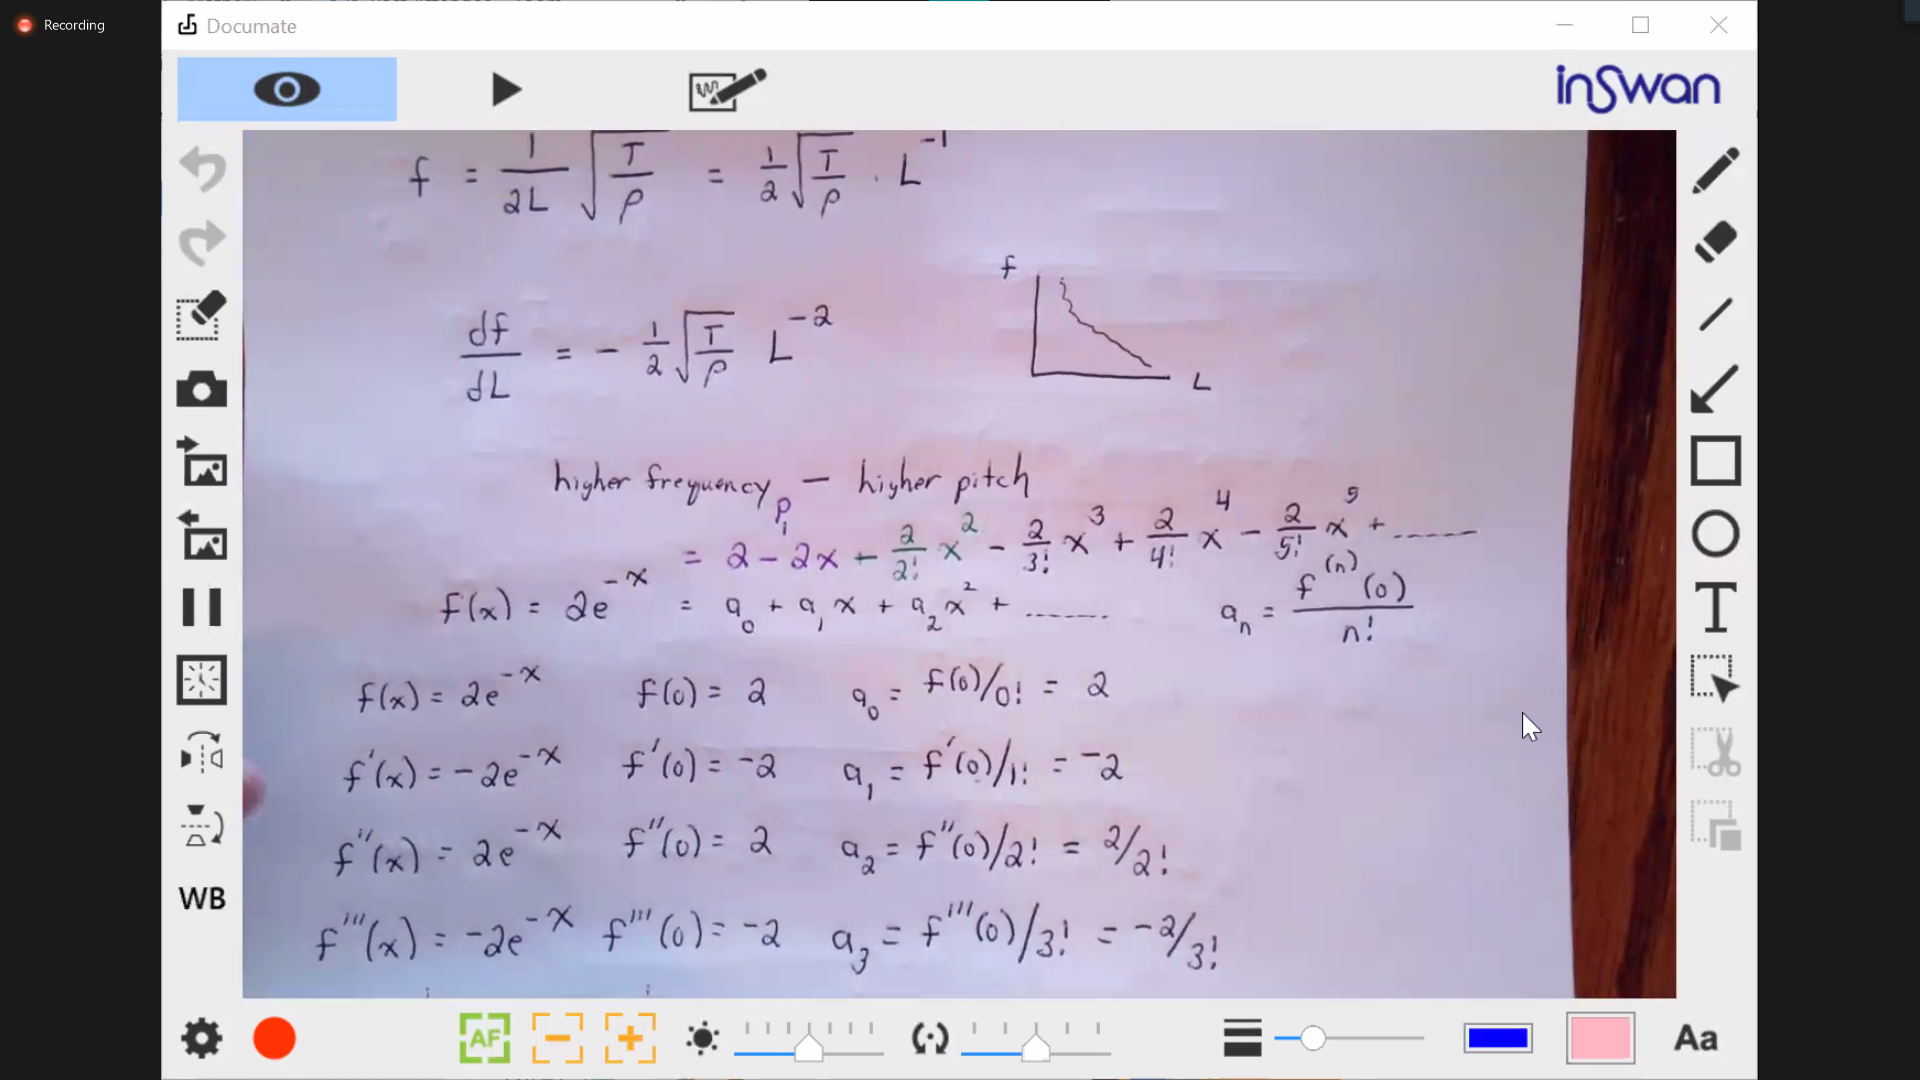 Recording
Documate
inSwan
f = 1/2L √(T/ρ) = 1/2 √(T/ρ) · L^-1
f
L
df/dL = - 1/2 √(T/ρ) L^-2
higher frequency — higher pitch
P1
= 2 - 2x + 2/2! x^2 - 2/3! x^3 + 2/4! x^4 - 2/5! x^5 + ......
f(x) = 2e^-x = a_0 + a_1 x + a_2 x^2 + ....... a_n = f^(n)(0)/n!
f(x) = 2e^-x f(0) = 2 a_0 = f(0)/0! = 2
f'(x) = -2e^-x f'(0) = -2 a_1 = f'(0)/1! = -2
f''(x) = 2e^-x f''(0) = 2 a_2 = f''(0)/2! = 2/2!
f'''(x) = -2e^-x f'''(0) = -2 a_3 = f'''(0)/3! = -2/3!
WB
T
AF
Aa